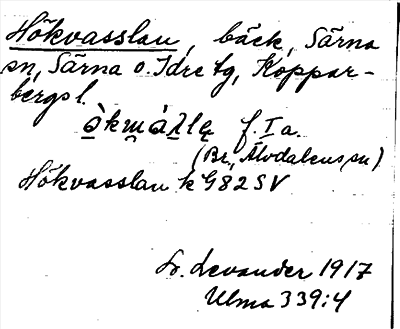 Hökvasslau, bäck, Särna
sn, Särna o. Idre tg, Koppar-
bergs l.
f. I a.
(Br, Älvdalens sn)
Hökvasslau k G82 SV
L. Levander 1917
Ulma 339:4